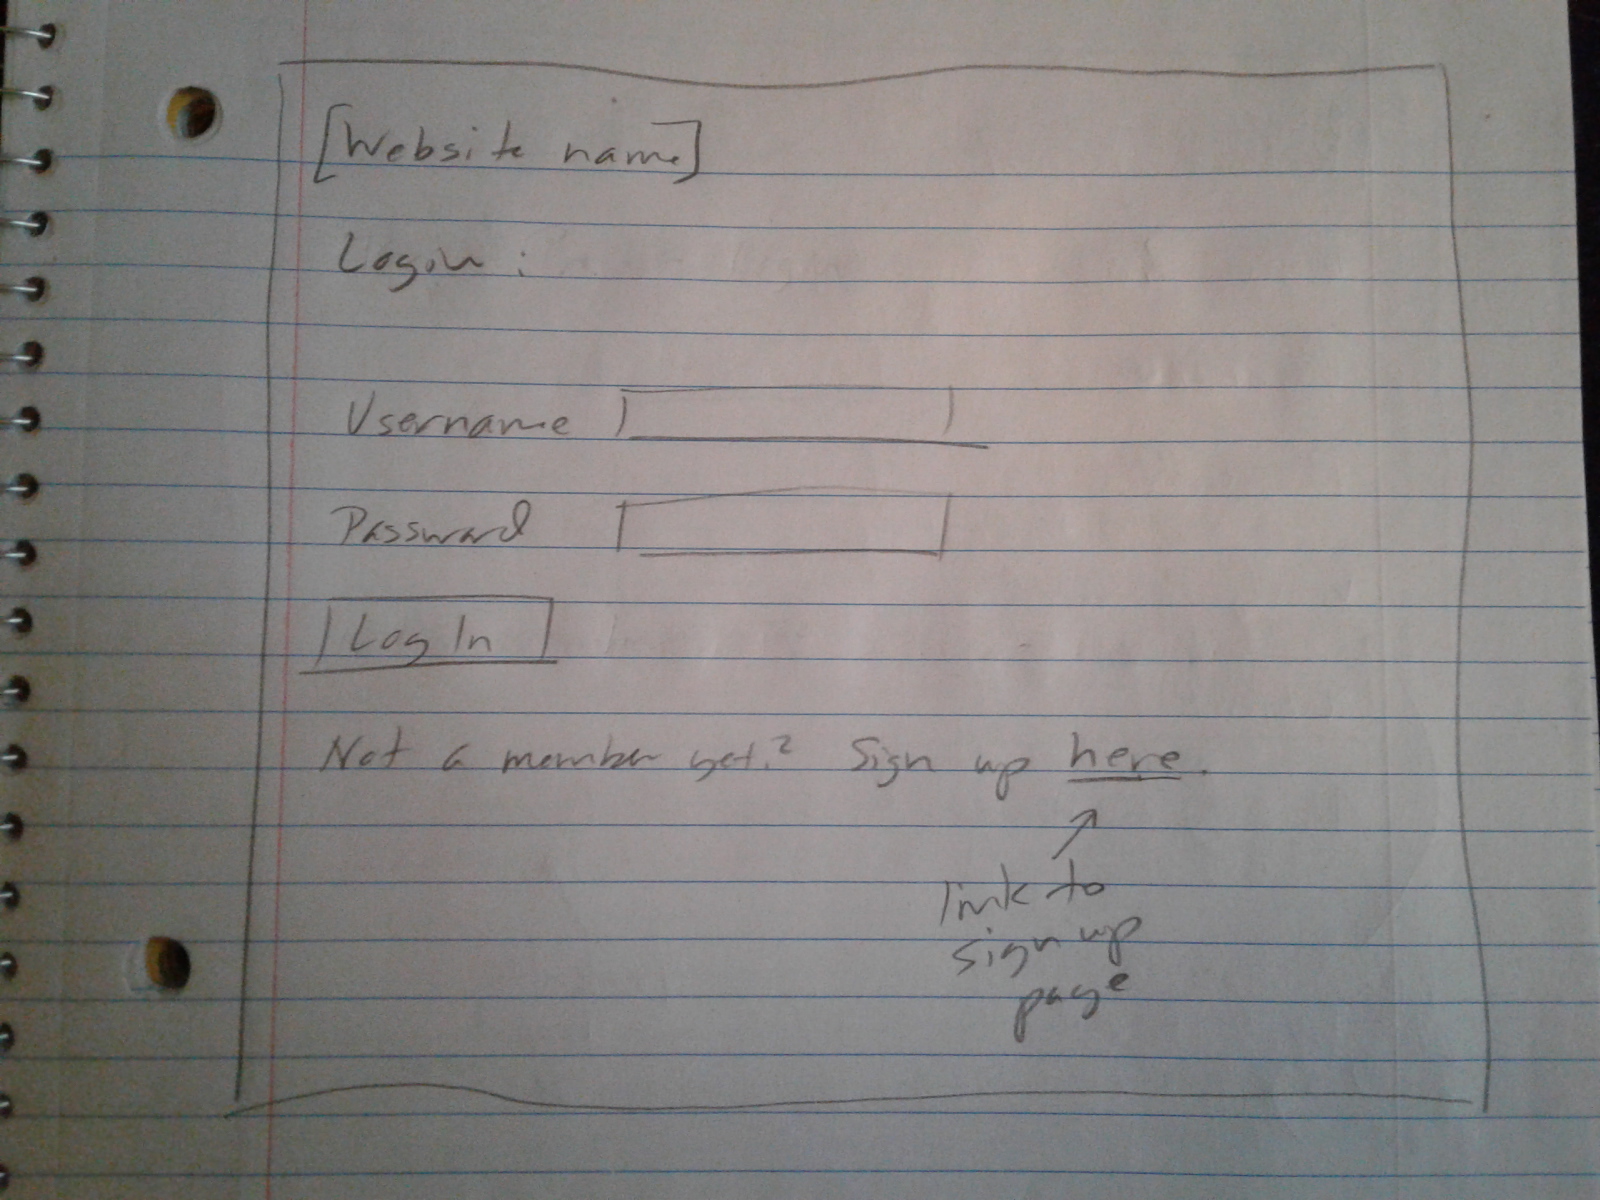 [Website name]
Login :
Username
Password
Log In
Not a member yet? Sign up here.
link to
sign up
page